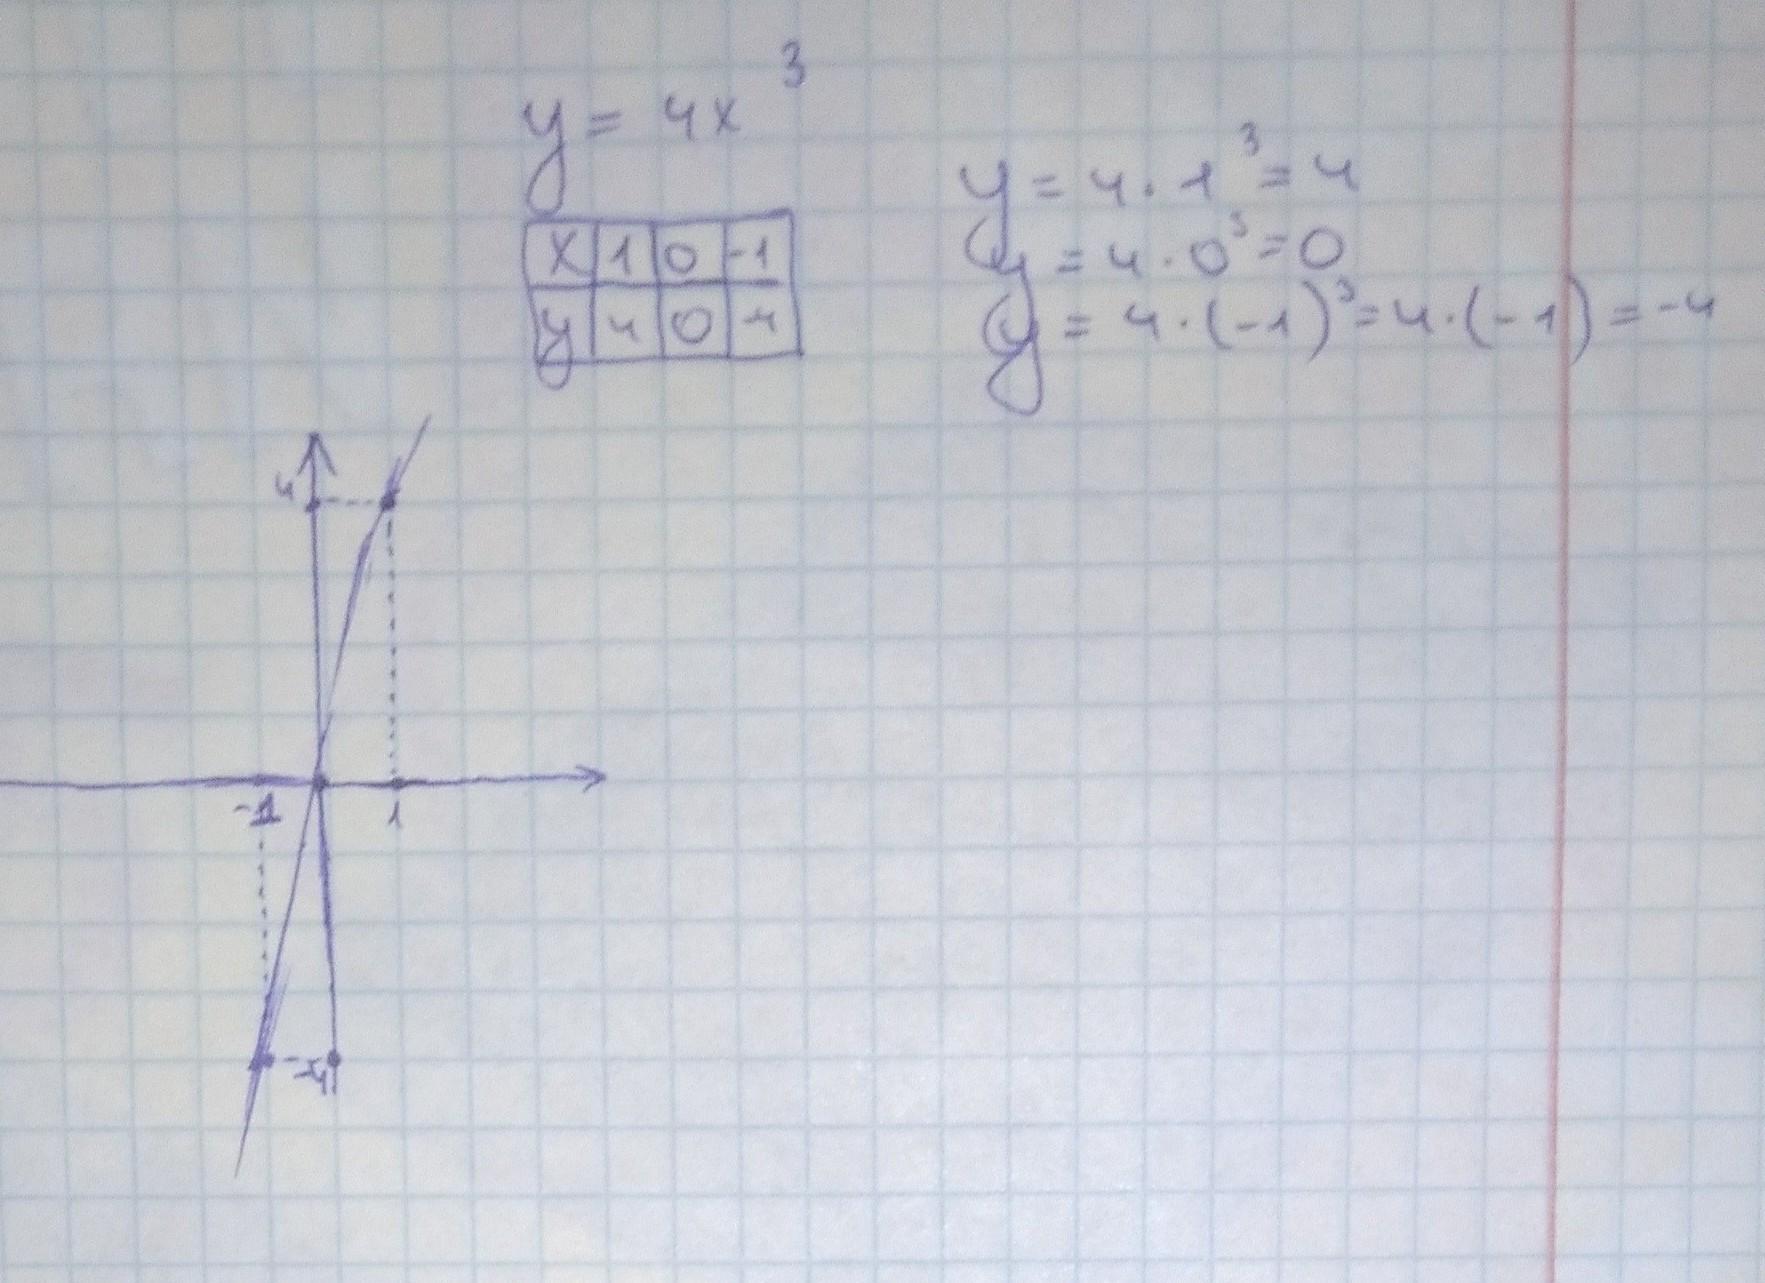 y = 4x³
x 1 0 -1
y 4 0 -4
y = 4 · 1³ = 4
y = 4 · 0³ = 0
y = 4 · (-1)³ = 4 · (-1) = -4
4
-1 1
-4